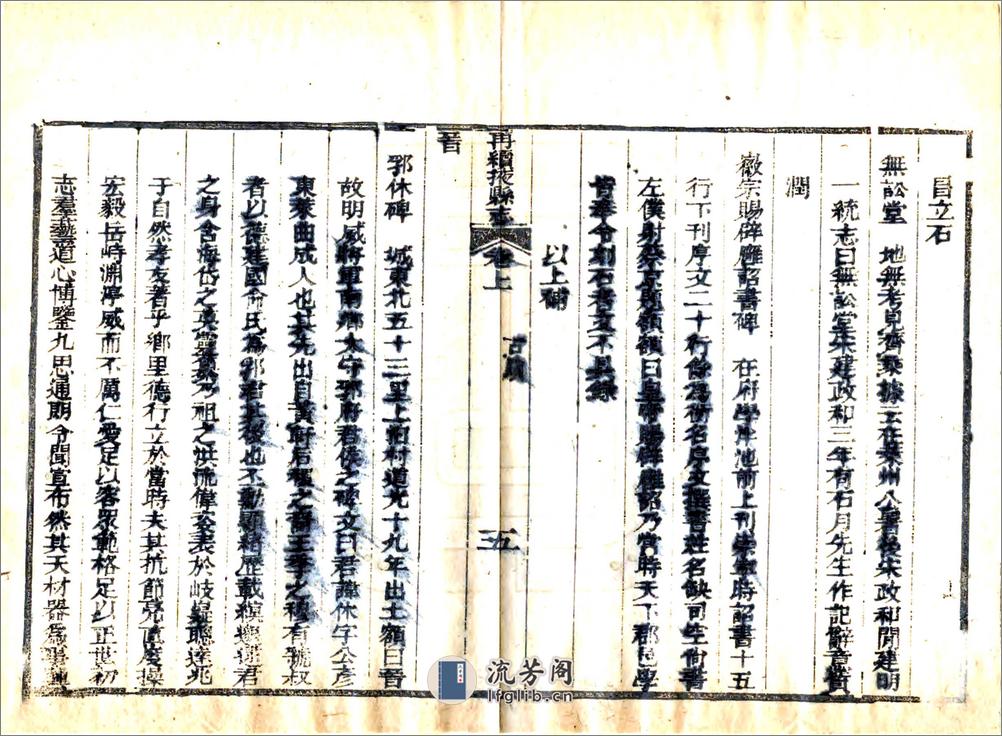 昌立石
無訟堂　地無考見齊乘據云在萊州公署後宋政和間建明
一統志曰無訟堂宋建政和二年有石月先生作記辭章質
潤
徽宗賜辟廱詔書碑　在府學泮池前上刊崇寧時詔書十五
行下刊序文二十行餘為銜名序文撰書姓名缺司空尚書
左僕射蔡京題額額曰皇帝賜辟廱詔乃當時天下郡邑學
皆奉令刻石者文不具錄
以上補
再續掖縣志
卷上
古蹟
五
晉
郛休碑　城東北五十三里上
村道光十九年出土額曰晉
故明威將軍南鄉太守郛府君侯之碑文曰君諱休字公彥
東萊曲成人也其先出自黃軒后稷之裔王季之穆有號叔
者以德建國命氏為郛君其後也不動
緒歷載繽
君
之身含海岱之
靈
祖之洪流偉姿表於岐嶷聰達兆
于自然孝友著乎鄉里德行立於當時夫其抗節亮直度操
宏毅岳峙淵渟威而不厲仁愛足以容眾範格足以正世初
志羣藝道心博鑒九思通朗令聞宣布然其天材器為
流芳阁
lfglib.com